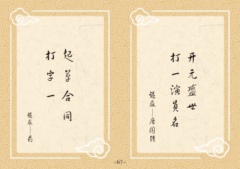 起草合同
打字一
谜底—药
开元盛世
打一演员名
谜底—唐国强
-67-